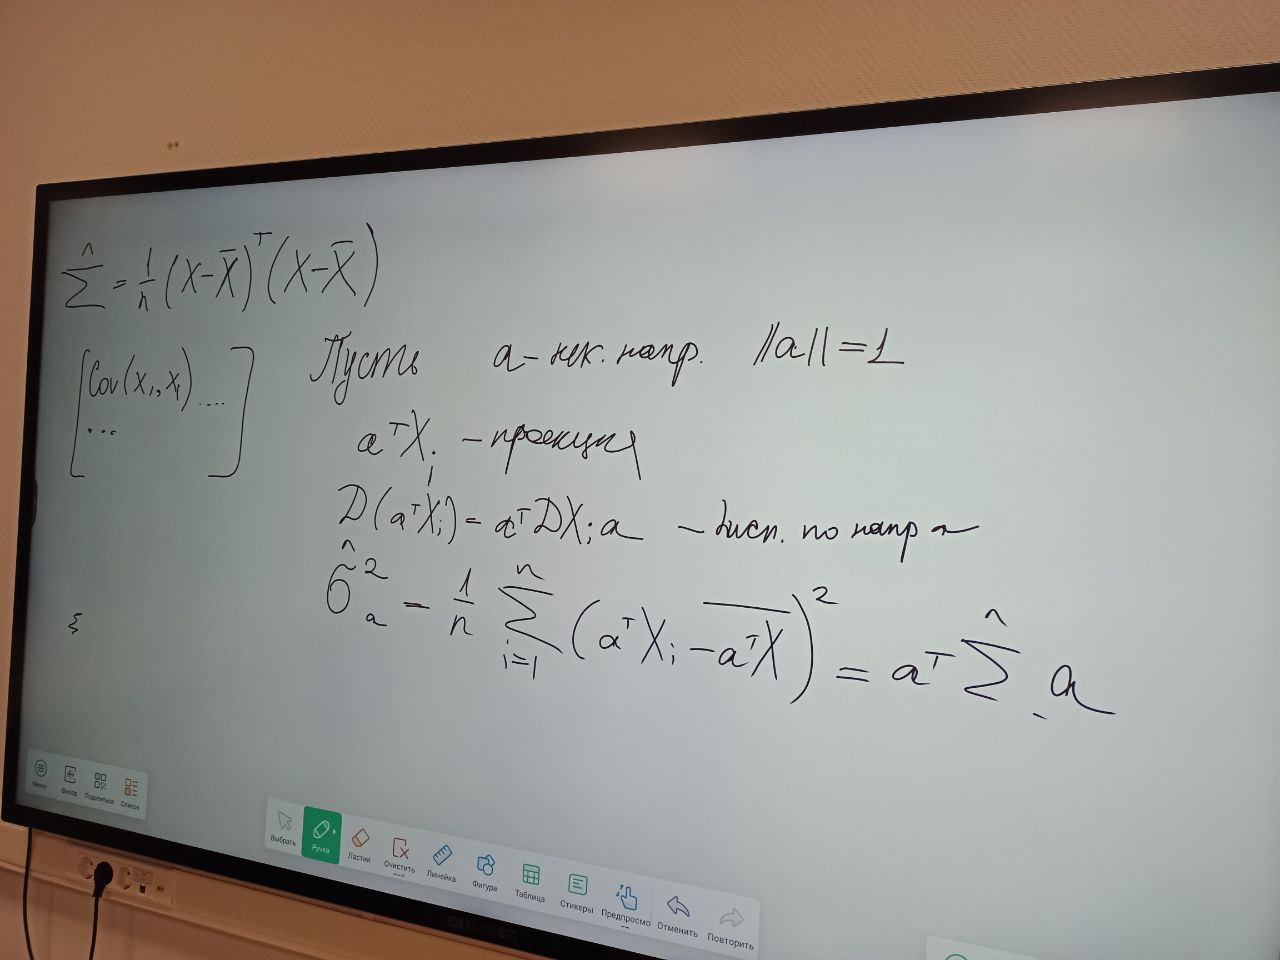 Σ̂ = 1/n (X-X̄)ᵀ(X-X̄)
[Cov(X₁,X₁) ....
...]
Пусть a - нек. напр. ||a|| = 1
aᵀXᵢ - проекция
D(aᵀXᵢ) = aᵀDXᵢa - дисп. по напр a
σ̂²ₐ = 1/n Σⁿᵢ₌₁ (aᵀXᵢ - \overline{aᵀX})² = aᵀ Σ̂ a
Меню
Выход
Поделиться
Список
Выбрать
Ручка
Ластик
Очистить
Линейка
Фигура
Таблица
Стикеры
Предпросмо
Отменить
Повторить